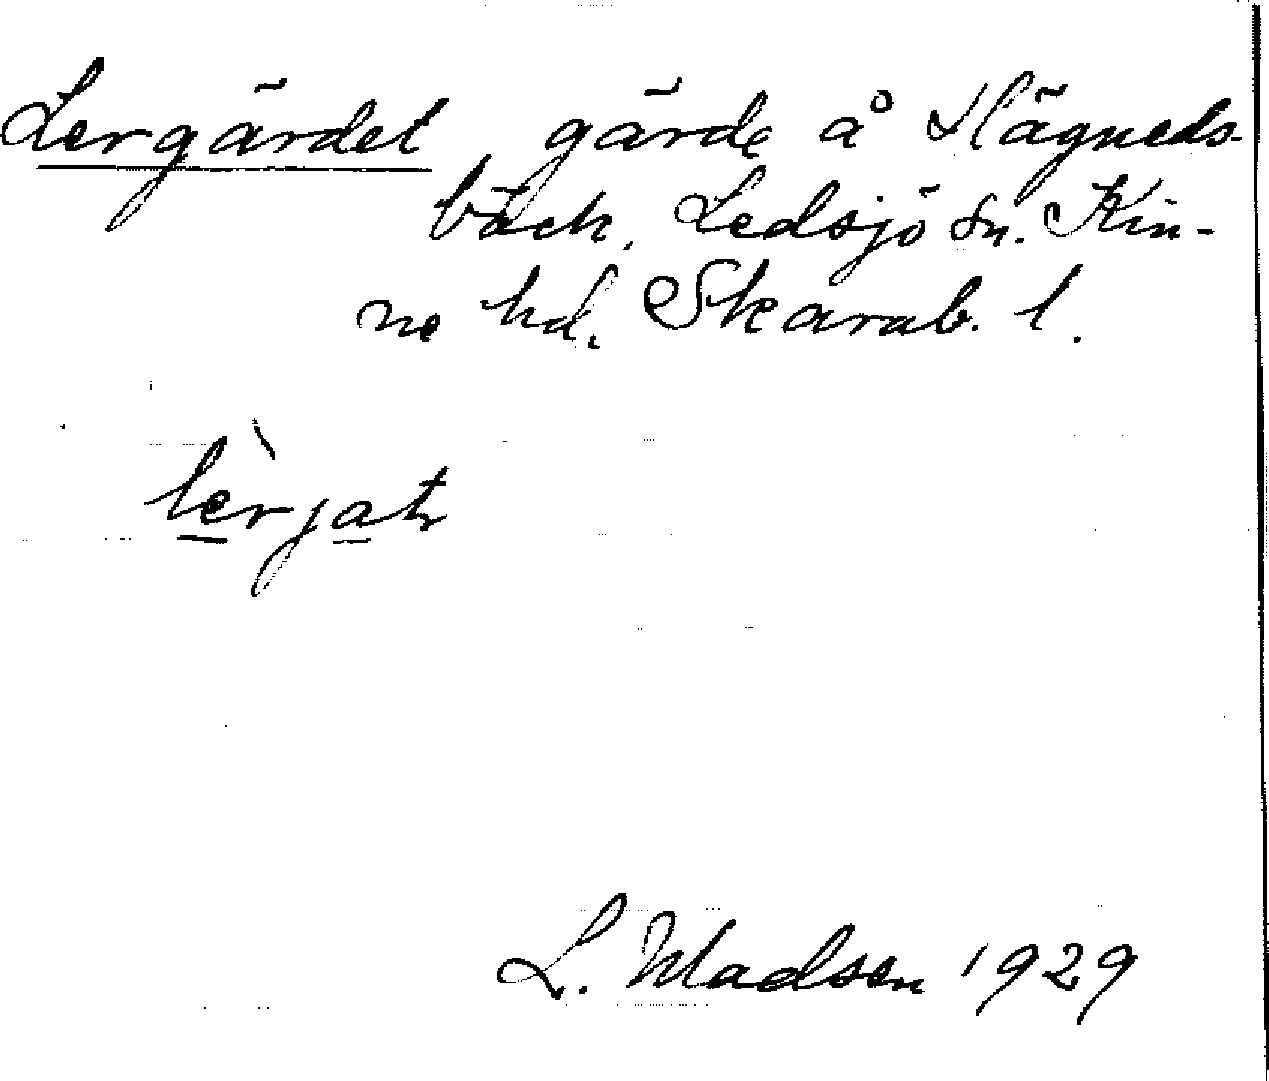 Lergärdet, gärde å Hägneds-
bäck. Ledsjö sn. Kin-
ne hd. Skarab. l.
lèrjatr
L. Madsen 1929